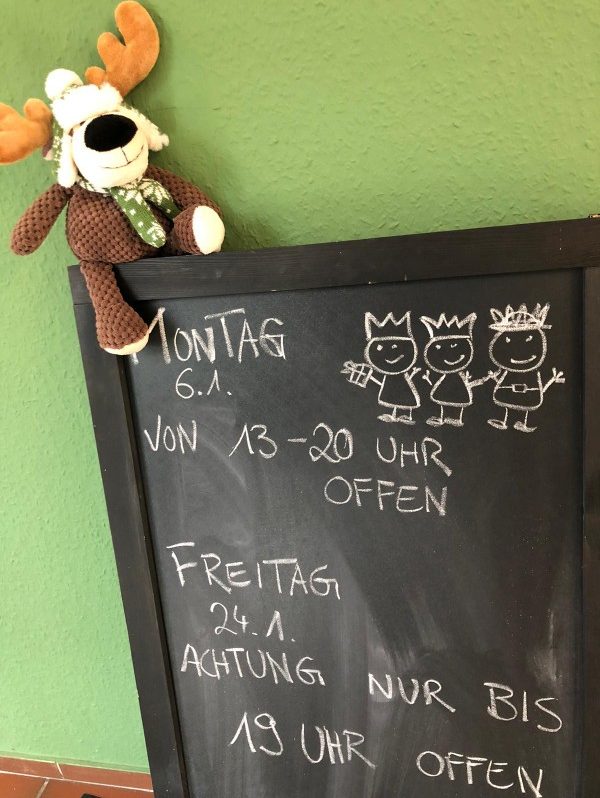 MONTAG
6.1.
VON 13-20 UHR
OFFEN
FREITAG
24.1.
ACHTUNG NUR BIS
19 UHR OFFEN